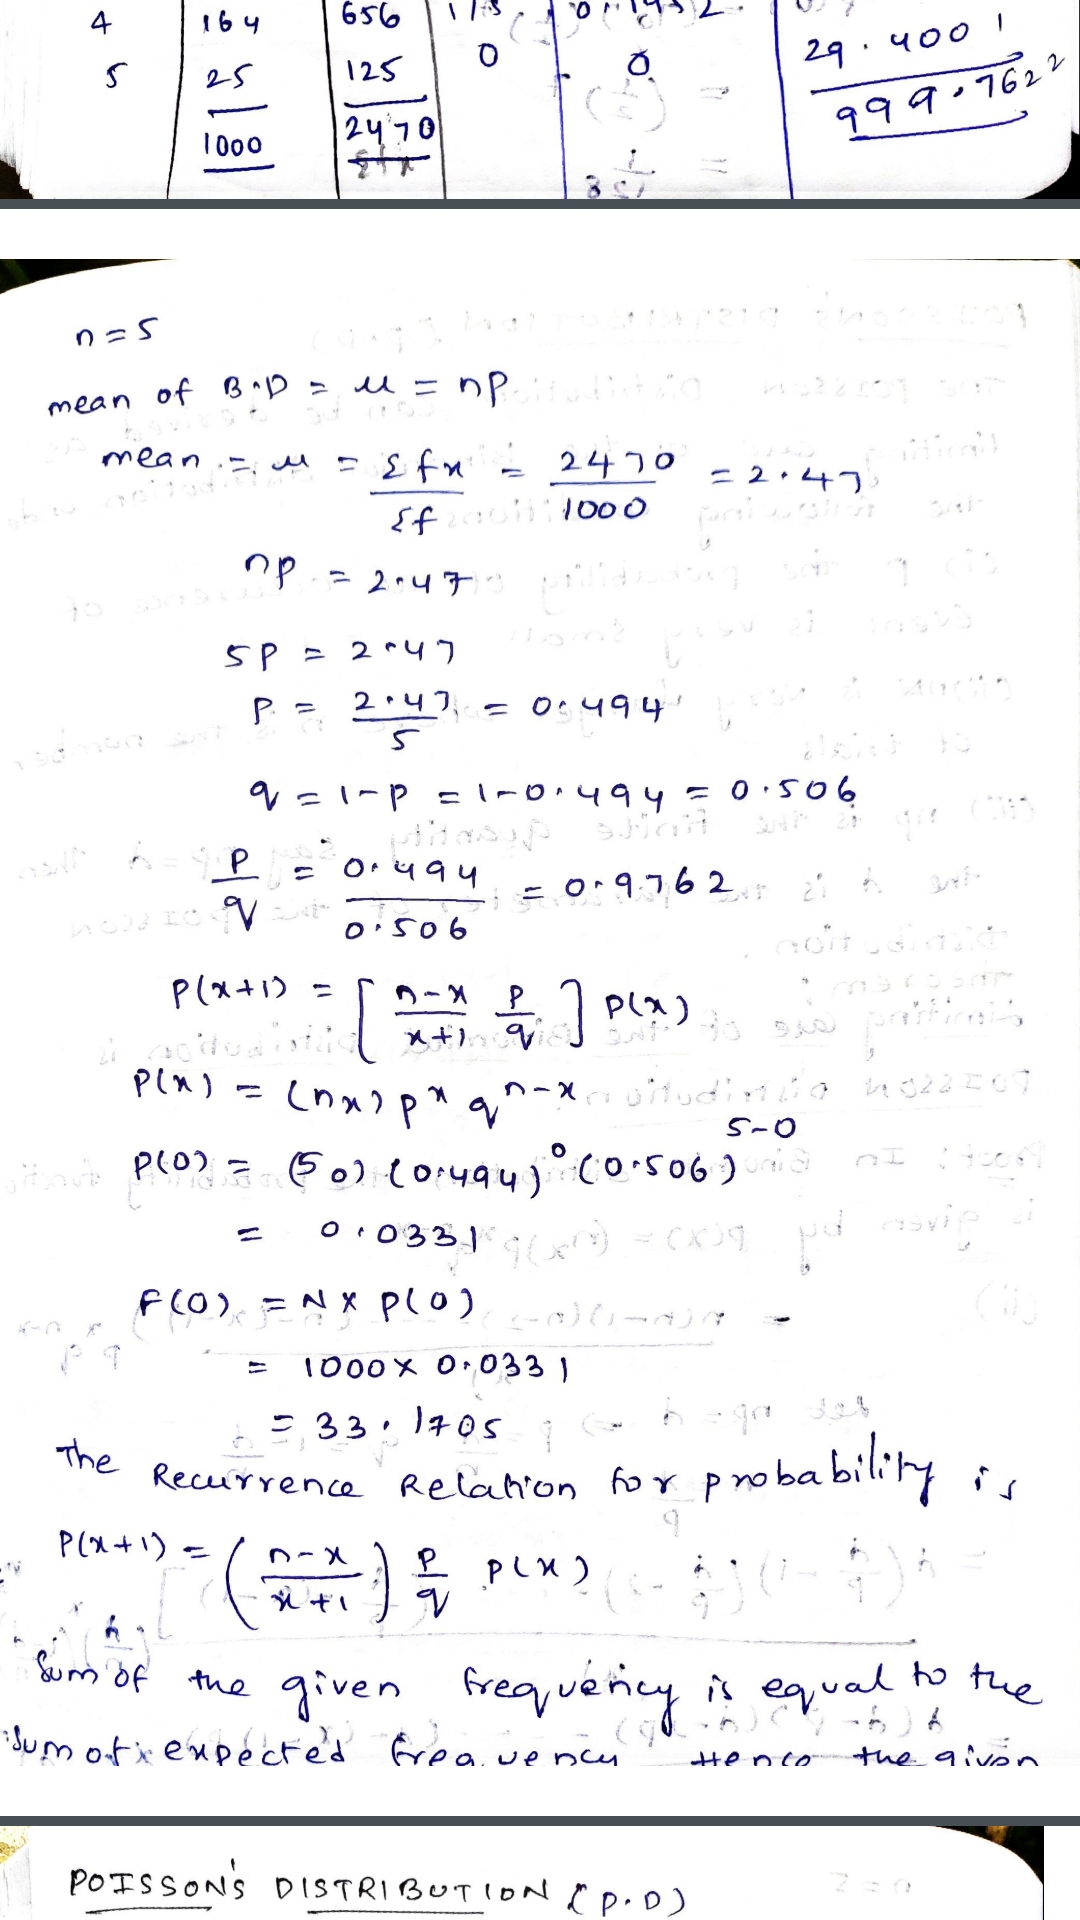 4 164 656
5 25 125 0 0 29.4001
1000 2470 999.7622
Σfx
n=5
mean of B.D = μ = np
mean = μ = Σfx / Σf = 2470 / 1000 = 2.47
np = 2.47
5p = 2.47
P = 2.47 / 5 = 0.494
q = 1-p = 1-0.494 = 0.506
p/q = 0.494 / 0.506 = 0.9762
P(x+1) = [ n-x / x+1 p/q ] P(x)
P(x) = (nx) p^x q^n-x
P(0) = (5 0) (0.494)^0 (0.506)^5-0
= 0.0331
F(0) = N x P(0)
= 1000 x 0.0331
= 33.1705
The Recurrence Relation for probability is
P(x+1) = ( n-x / x+1 ) p/q P(x)
Sum of the given frequency is equal to the
sum of expected frequency Hence the given
POISSON'S DISTRIBUTION (P.D)